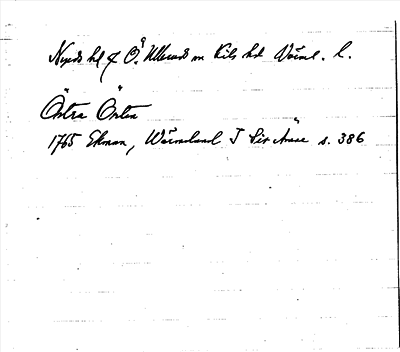 Nyeds hd o Ö. Ullerud sn Kils hd Värml. l.
Östra Örten
1765 Ekman, Wärmeland I s. 386